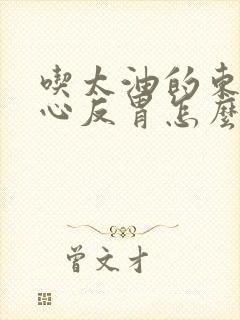 喫太油的東
心反胃怎麼
曾文才